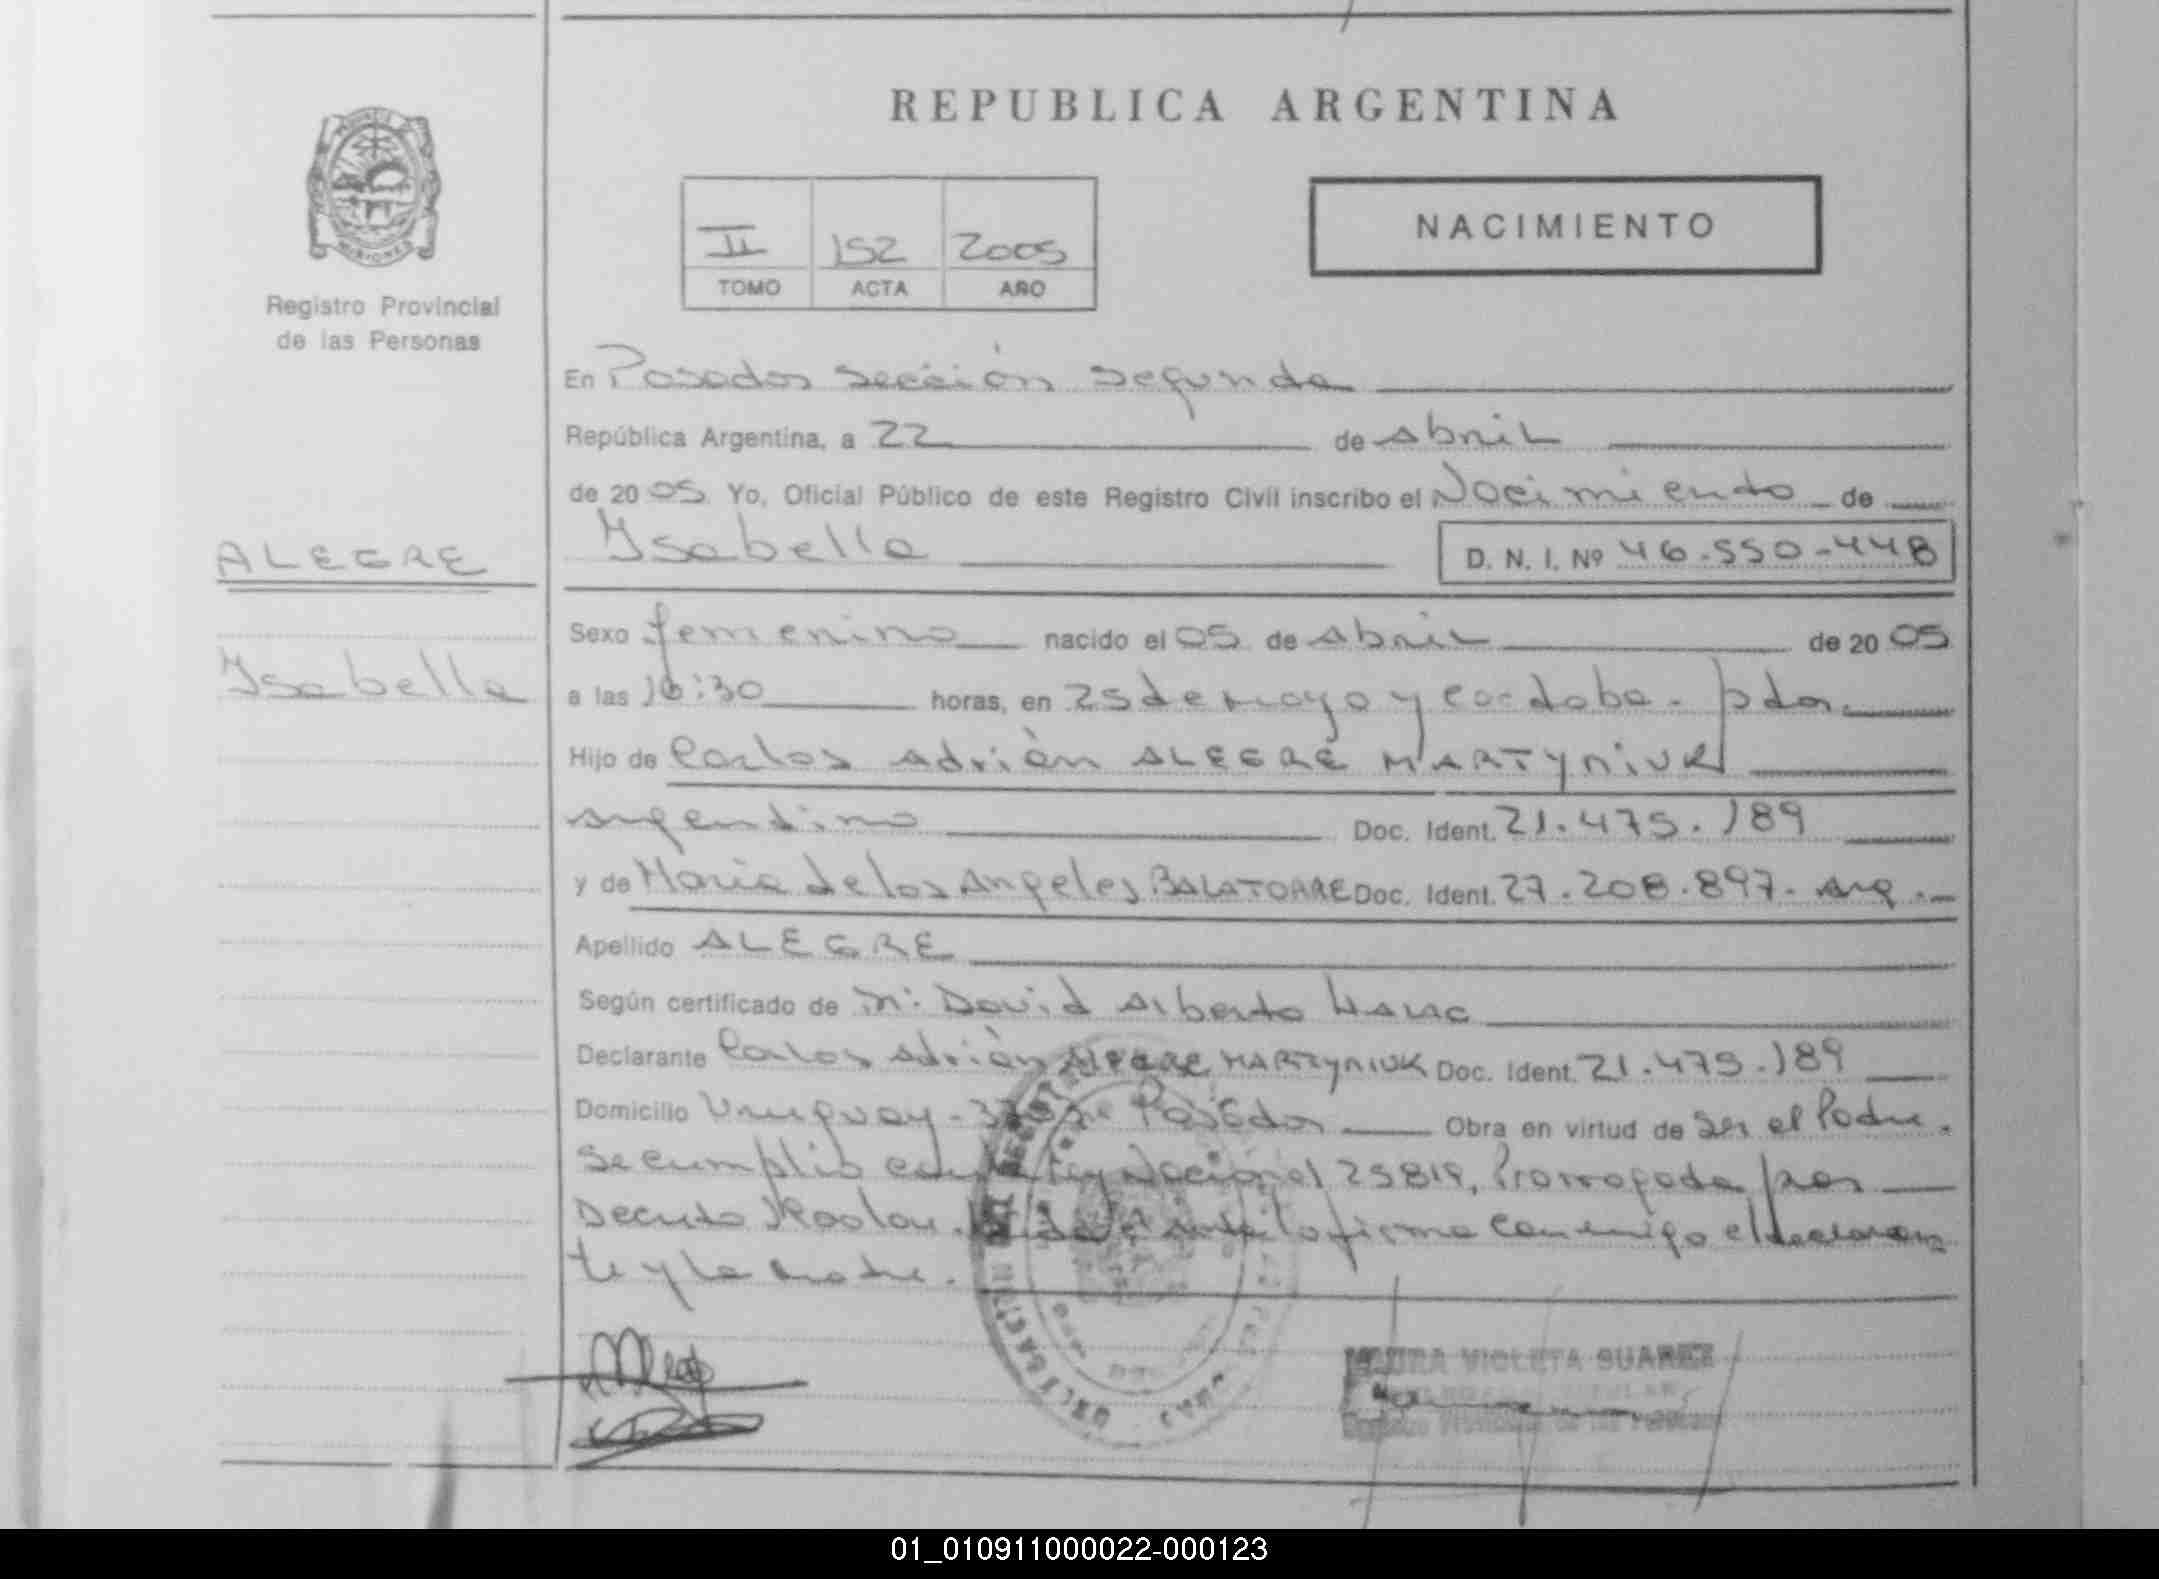 REPUBLICA ARGENTINA
NACIMIENTO
II 152 2005
TOMO ACTA AÑO
MISIONES
Registro Provincial
de las Personas
En Posadas sección segunda
República Argentina, a 22 de abril
de 2005. Yo, Oficial Público de este Registro Civil inscribo el Nacimiento de
Isabella D. N. I. Nº 46.550.448
ALEGRE
Isabella
Sexo femenino nacido el 05 de abril de 2005
a las 16:30 horas, en 25 de mayo y cordoba - pdas.
Hijo de Carlos Adrián ALEGRE MARTYNIUK
argentino Doc. Ident. 21.475.189
y de Maria de los Angeles BALATORRE Doc. Ident. 27.208.897- arg.
Apellido ALEGRE
Según certificado de Dr. David Alberto
Declarante Carlos Adrián ALEGRE MARTYNIUK Doc. Ident. 21.475.189
Domicilio Uruguay - Posadas Obra en virtud de ser el Padre.
Se cumplio con Ley Nacional 25819, Prorrogada por
Decreto la firma conmigo el declaran
te y la madre.
VIOLETA SUAREZ
01_010911000022-000123